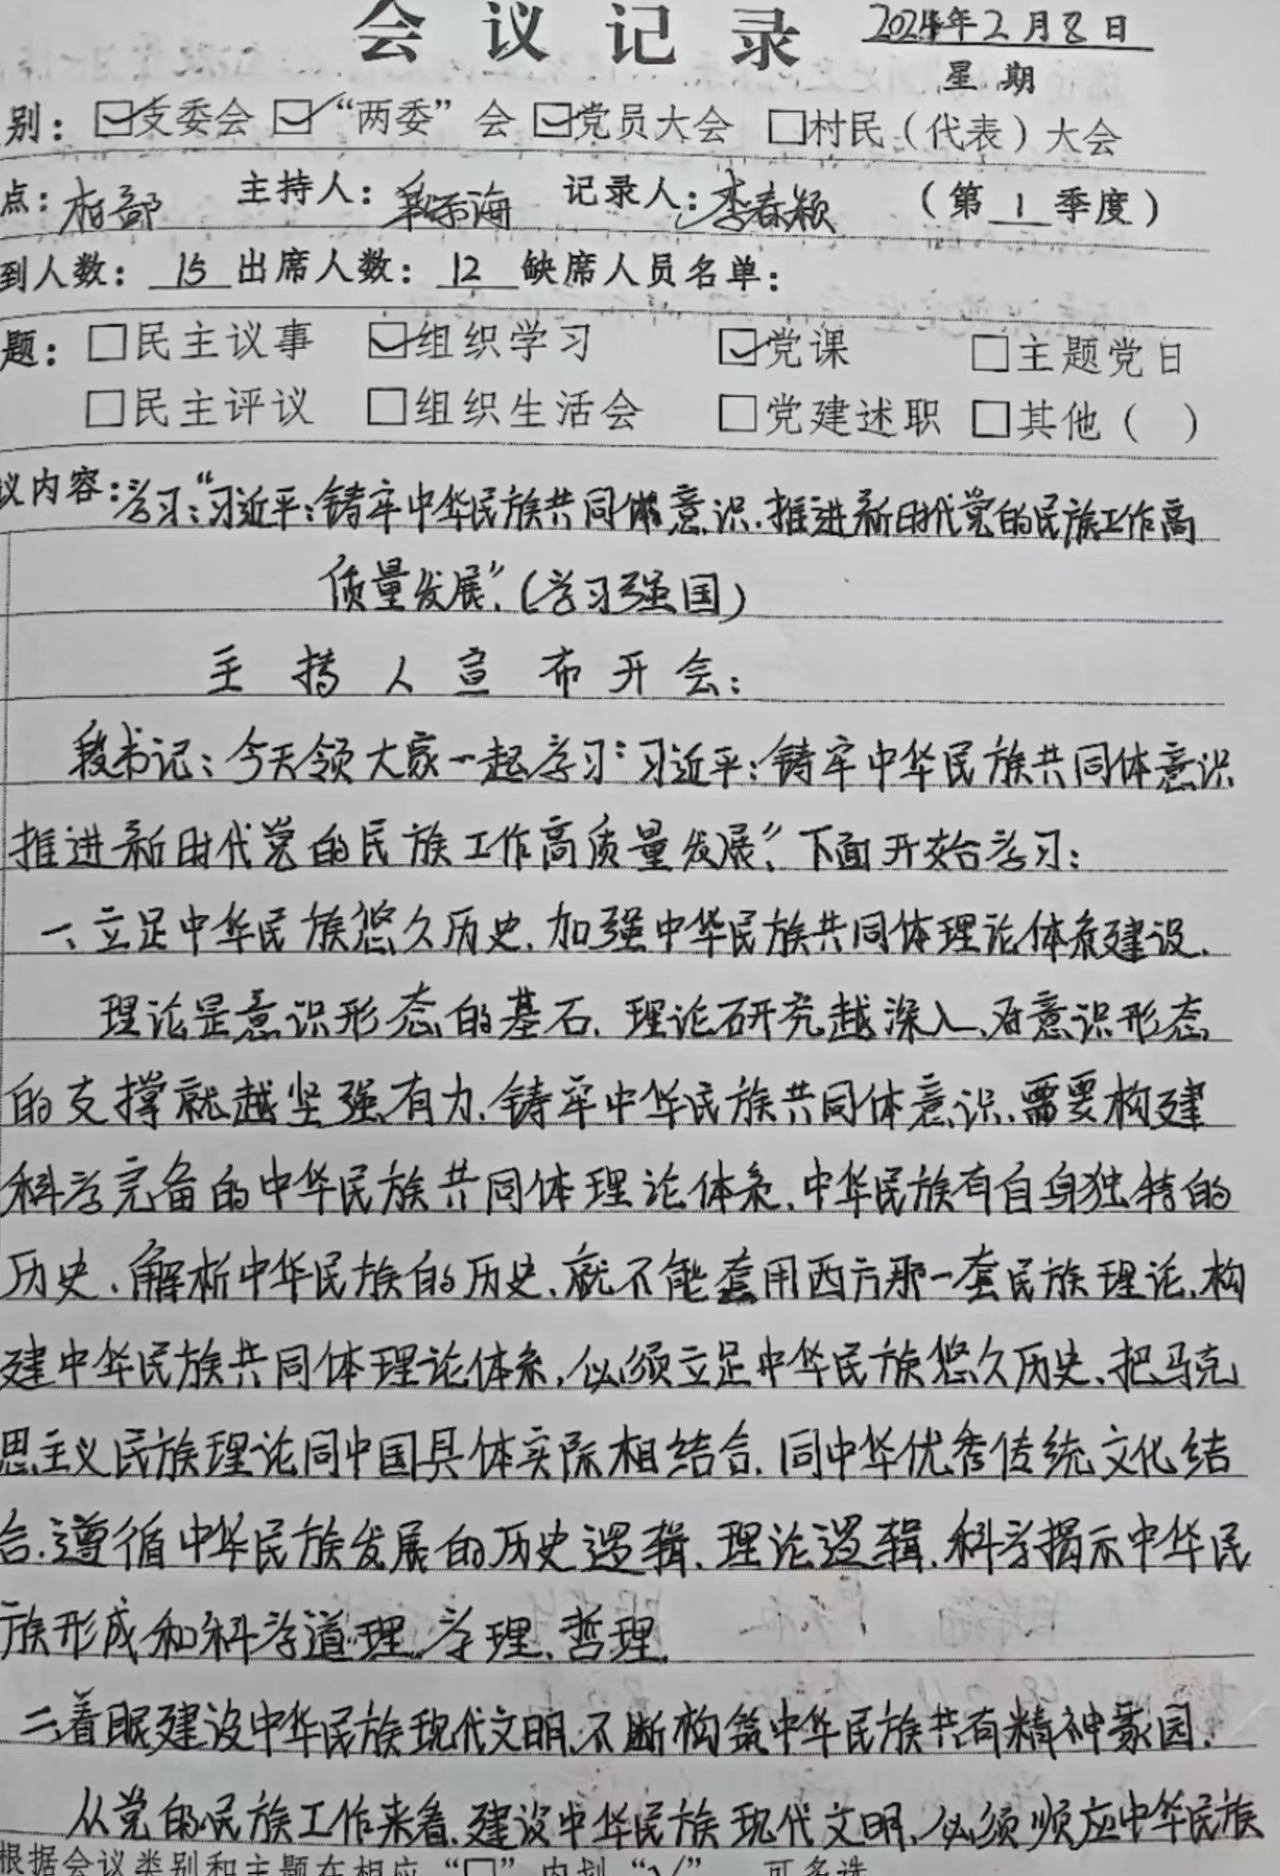 会议记录 2024年2月8日
星期
别：☑支委会 ☑“两委”会 ☑党员大会 □村民（代表）大会
点：村部 主持人：海 记录人：李春颖 （第1季度）
到人数：15 出席人数：12 缺席人员名单：
题：□民主议事 ☑组织学习 ☑党课 □主题党日
□民主评议 □组织生活会 □党建述职 □其他（ ）
议内容：学习：“习近平：铸牢中华民族共同体意识.推进新时代党的民族工作高
质量发展”.（学习强国）
主持人宣布开会：
段书记：今天领大家一起学习“习近平：铸牢中华民族共同体意识
推进新时代党的民族工作高质量发展”.下面开始学习：
一、立足中华民族悠久历史.加强中华民族共同体理论体系建设.
理论是意识形态的基石.理论研究越深入、对意识形态
的支撑就越坚强有力.铸牢中华民族共同体意识.需要构建
科学完备的中华民族共同体理论体系.中华民族有自身独特的
历史.解析中华民族的历史.就不能套用西方那一套民族理论.构
建中华民族共同体理论体系.必须立足中华民族悠久历史.把马克
思主义民族理论同中国具体实际相结合.同中华优秀传统文化结
合.遵循中华民族发展的历史逻辑.理论逻辑.科学揭示中华民
族形成和科学道理.学理.哲理.
二.着眼建设中华民族现代文明.不断构筑中华民族共有精神家园.
从党的民族工作来看.建设中华民族现代文明.必须顺应中华民族
根据会议类别和主题在相应“□”内划“√”，可多选